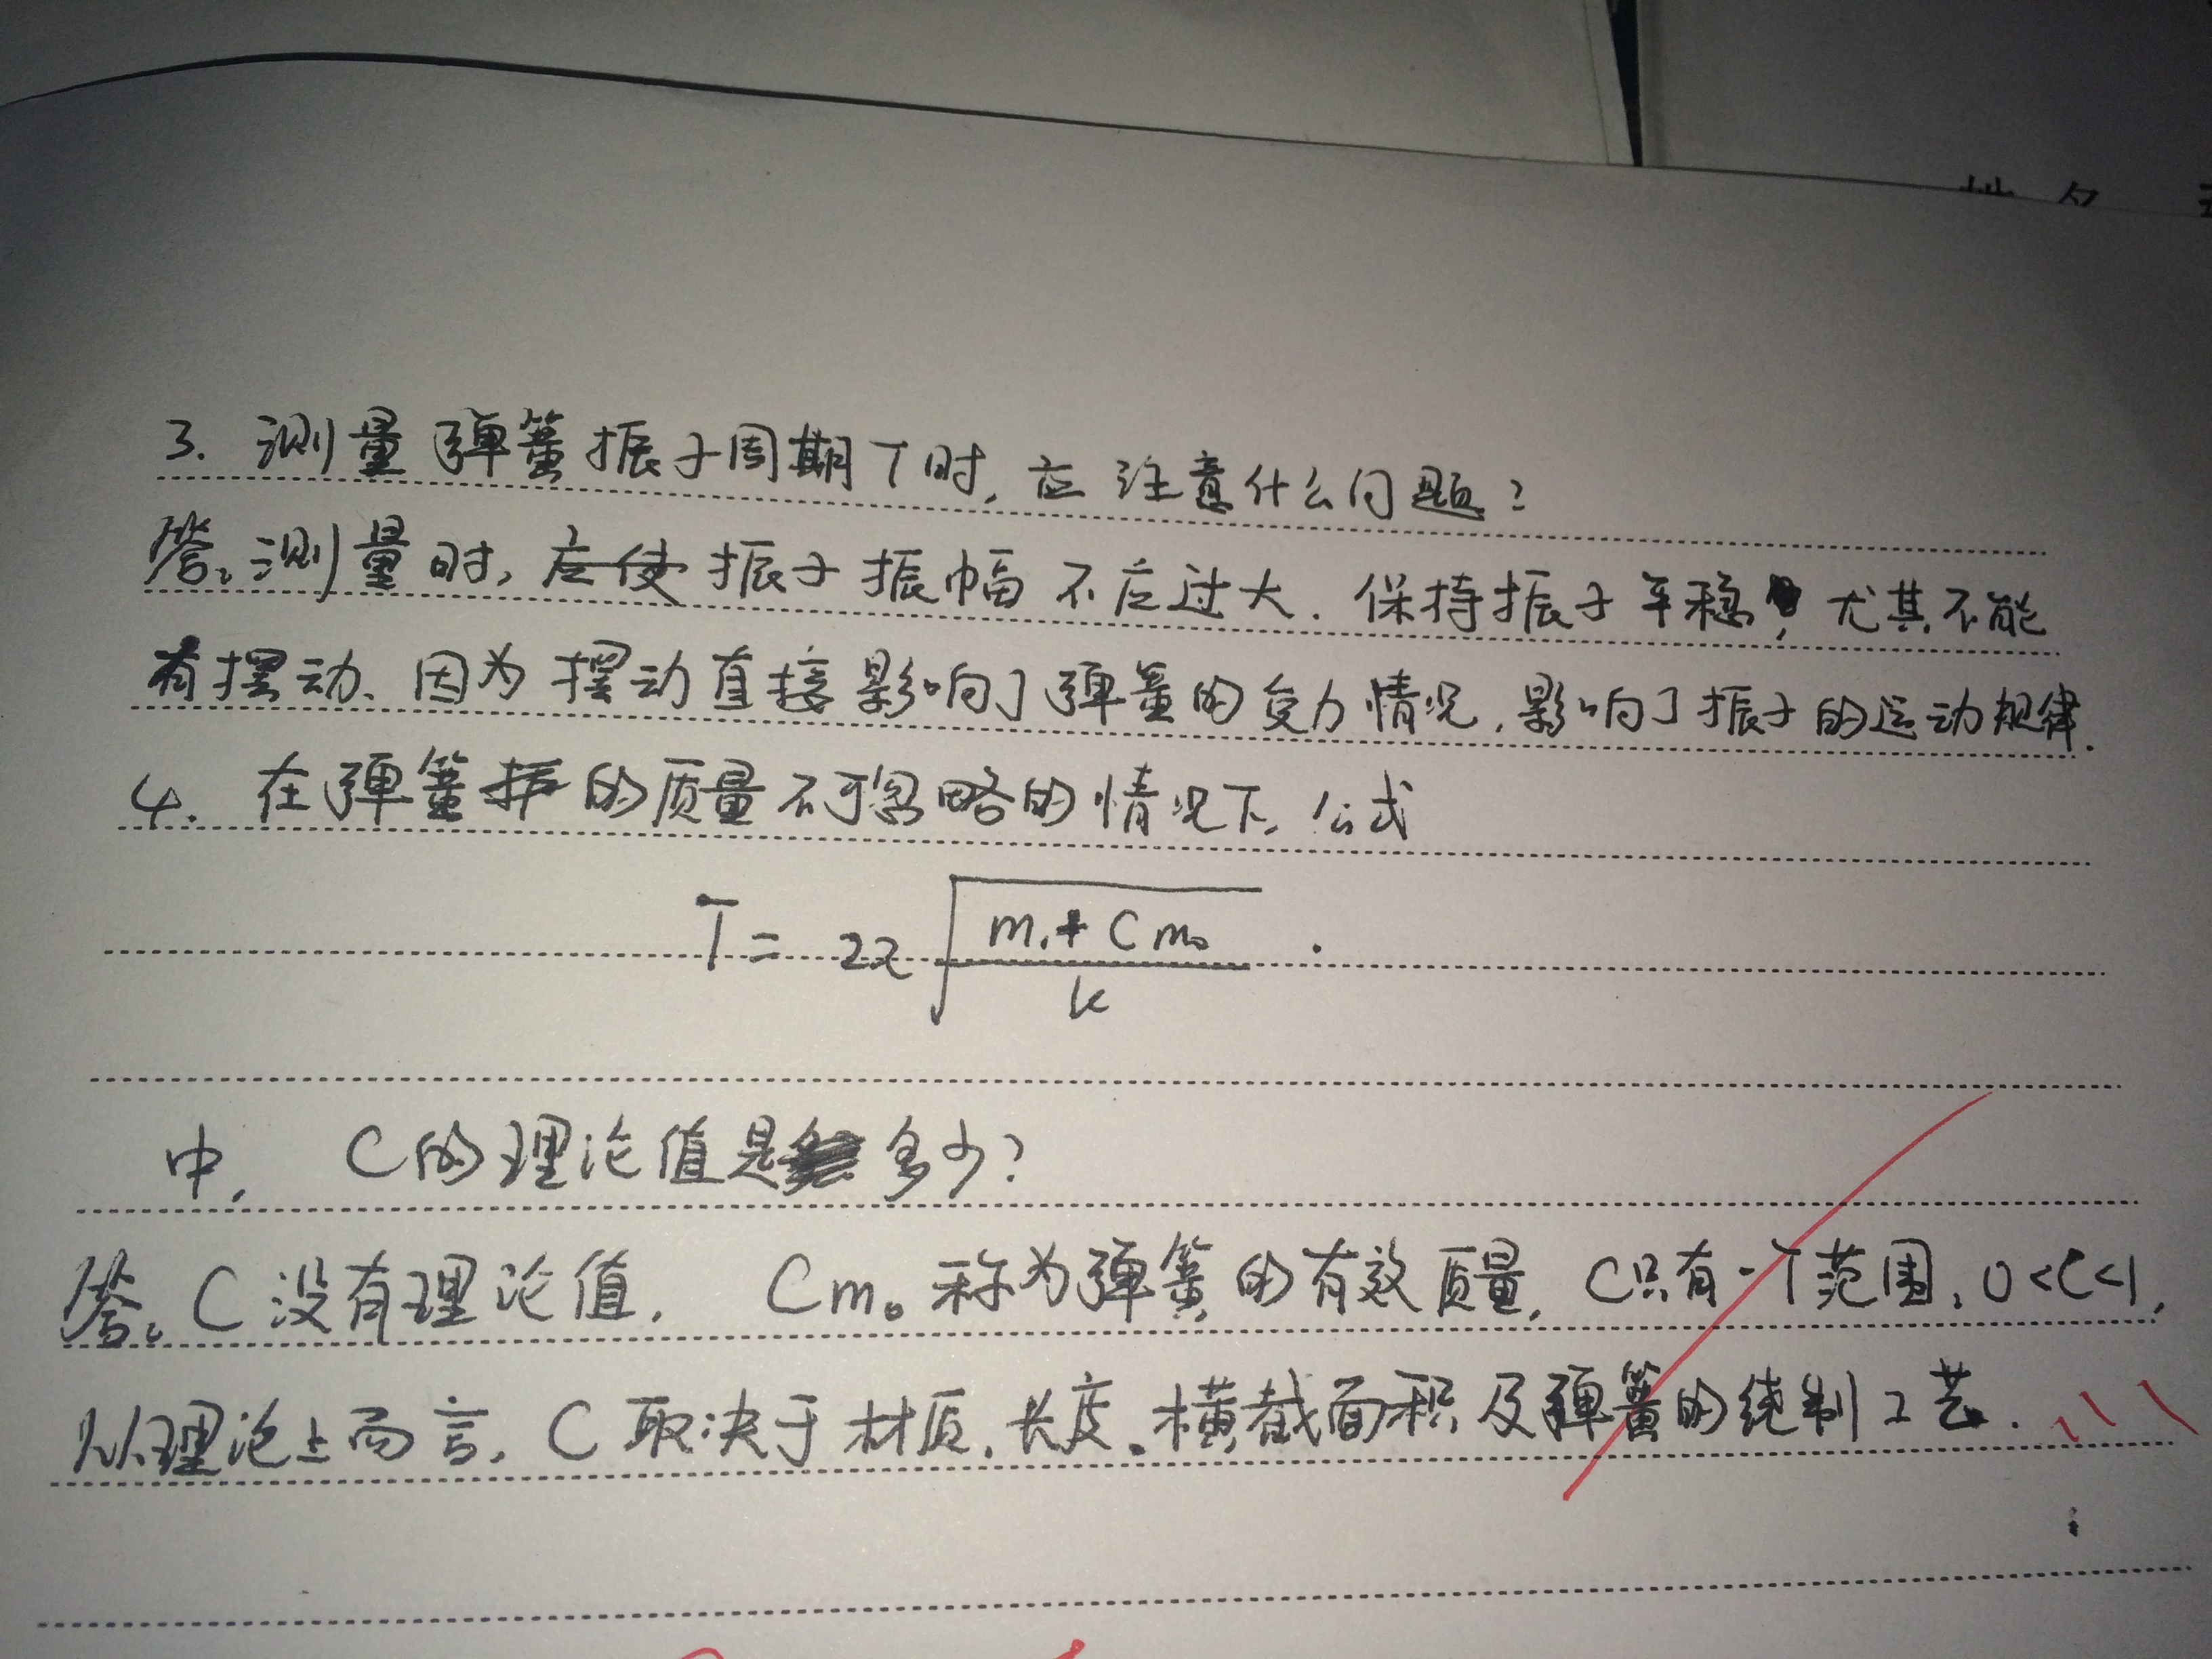 3. 测量弹簧振子周期T时,应注意什么问题?
答:测量时,应使振子振幅不应过大.保持振子平稳,尤其不能
有摆动、因为摆动直接影响了弹簧的受力情况,影响了振子的运动规律.
4. 在弹簧振的质量不可忽略的情况下,公式
T = 2π√((m₁+Cm₀)/k) .
中, C的理论值是多少?
答:C没有理论值, Cm₀称为弹簧的有效质量,C只有一个范围,0<C<1,
从理论上而言,C取决于材质、长度、横截面积及弹簧的绕制工艺.